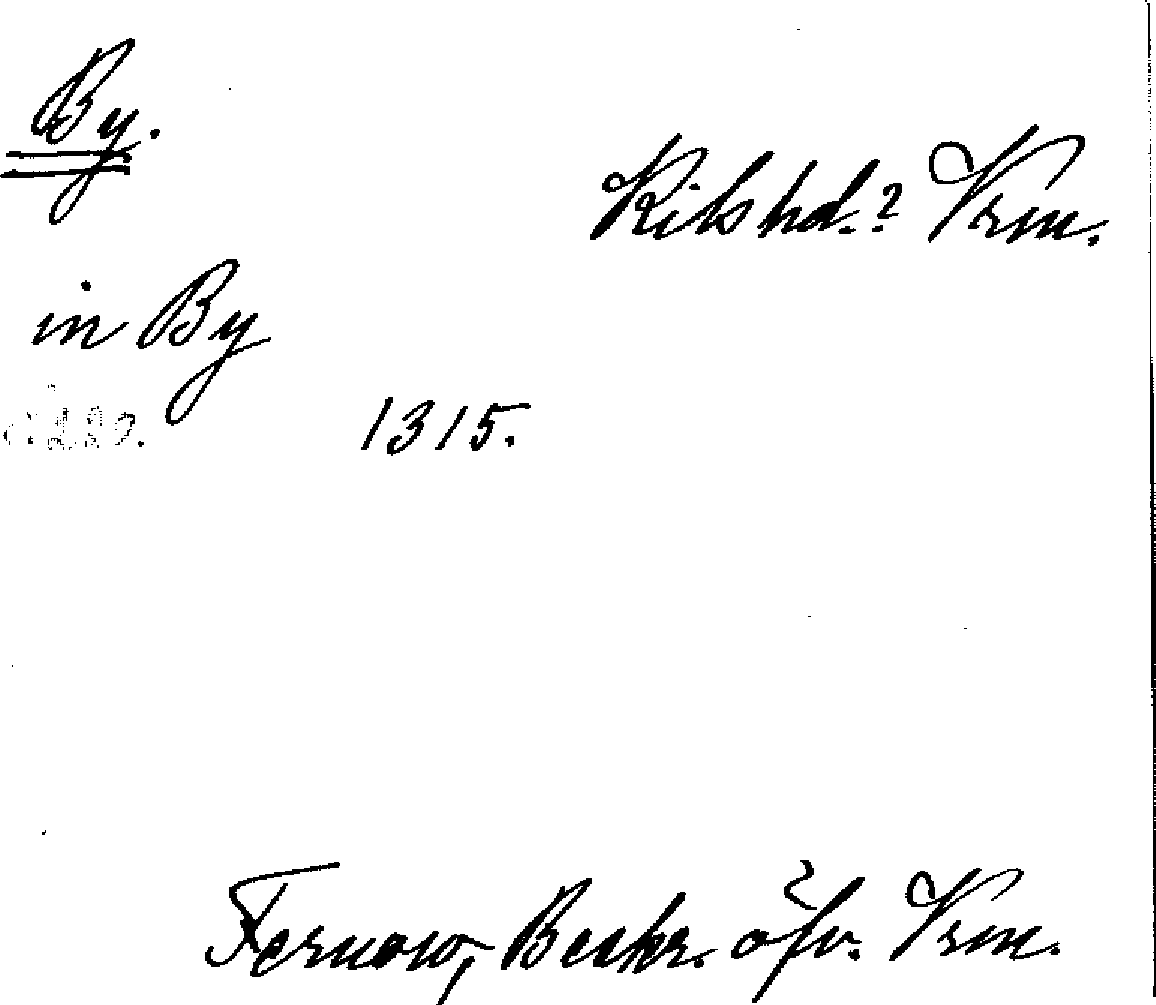 By.
Kils hd.? Vrm.
in By
1315.
Fernow, Beskr. öfv. Vrm.